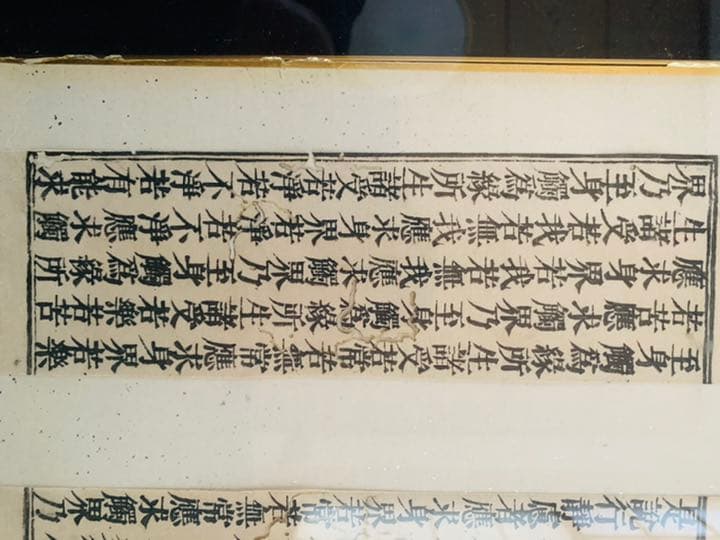 是說行靜慮者應求身界若常若無常應求觸界乃
至身觸爲緣所生諸受若常若無常應求身界若樂
若苦應求觸界乃至身觸爲緣所生諸受若樂若苦
應求身界若我若無我應求觸界乃至身觸爲緣所
生諸受若我若無我應求身界若淨若不淨應求觸
界乃至身觸爲緣所生諸受若淨若不淨若有能求